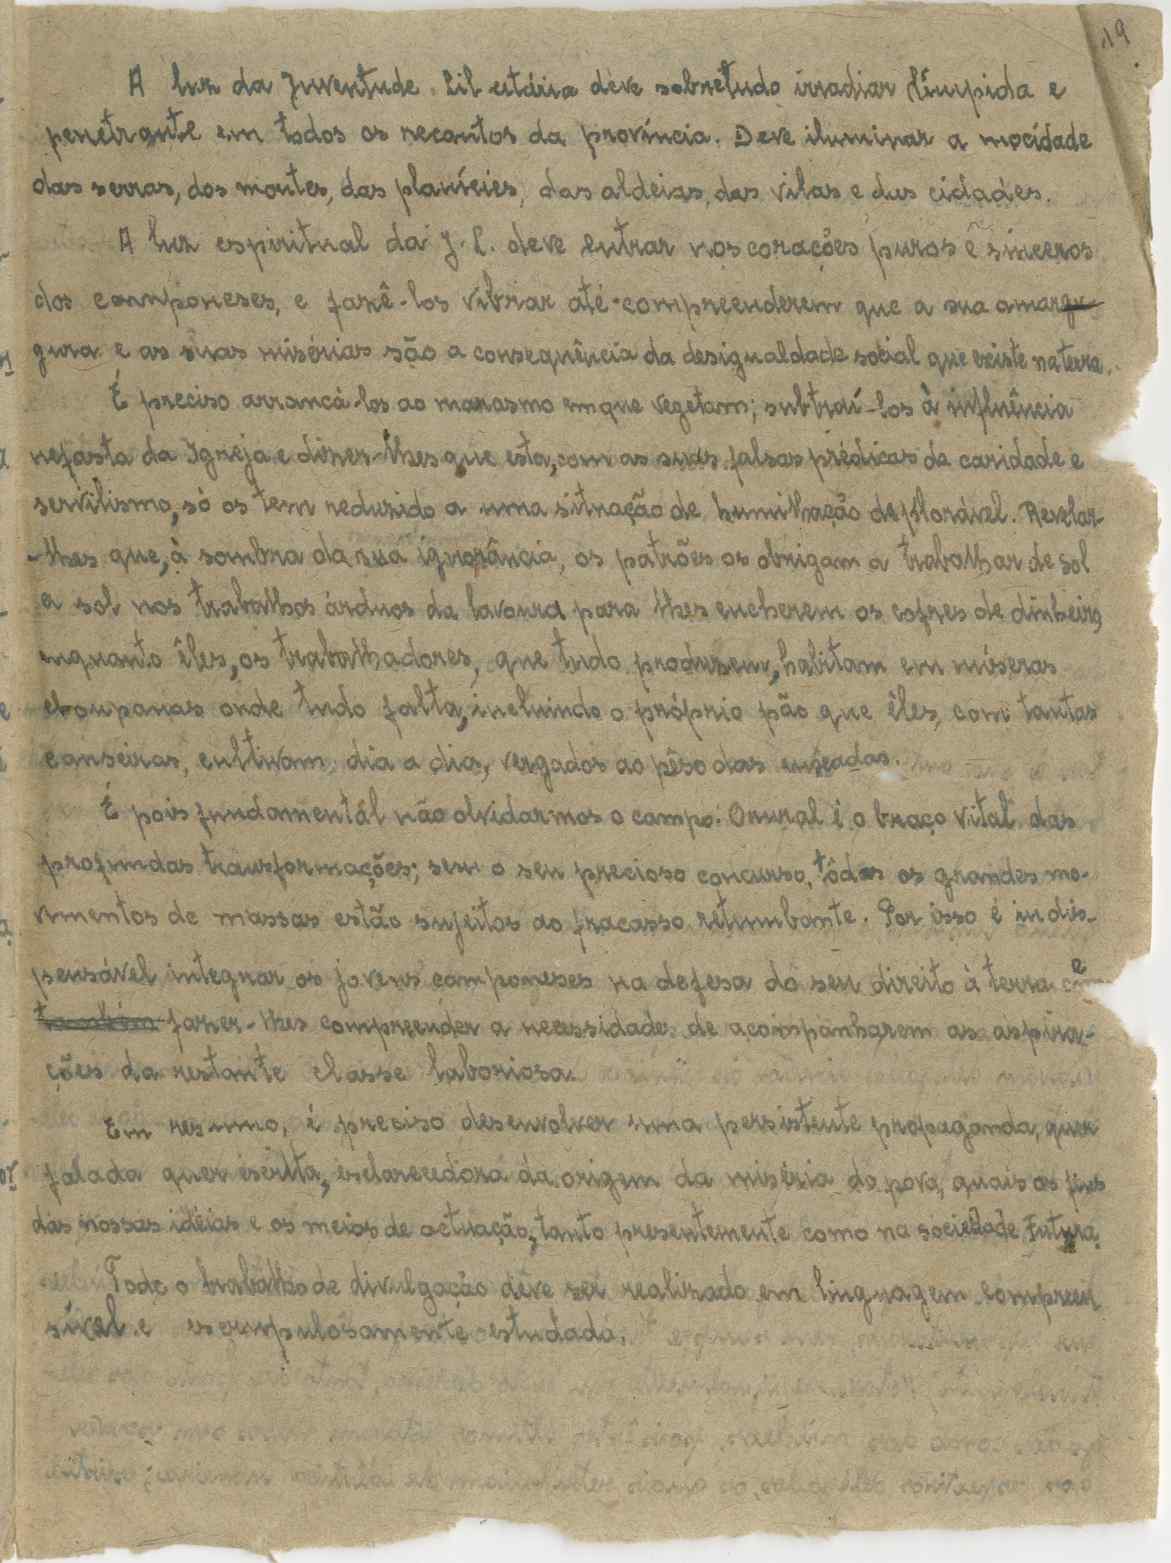 19
A luz da Juventude Libertária deve sobretudo irradiar límpida e
penetrante em todos os recantos da província. Deve iluminar a mocidade
das serras, dos montes, das planícies, das aldeias, das vilas e das cidades.
A luz espiritual da J. L. deve entrar nos corações puros e sinceros
dos camponeses, e fazê-los vibrar até compreenderem que a sua amar
gura e as suas misérias são a consequência da desigualdade social que existe na terra.
É preciso arrancá-los ao marasmo em que vegetam; subtraí-los à influência
nefasta da Igreja e dizer-lhes que esta, com as suas falsas prédicas de caridade e
servilismo, só os tem reduzido a uma situação de humilhação deplorável. Revelar-
-lhes que, à sombra da sua ignorância, os patrões os obrigam a trabalhar de sol
a sol nos trabalhos árduos da lavoura para lhes encherem os cofres de dinheiro,
enquanto êles, os trabalhadores, que tudo produzem, habitam em míseras
choupanas onde tudo falta, incluindo o próprio pão que êles, com tantas
canseiras, cultivam, dia a dia, vergados ao pêso das enxadas.
É pois fundamentál não olvidarmos o campo. O rural é o braço vital das
profundas transformações; sem o seu precioso concurso, tôdos os grandes mo-
vimentos de massas estão sujeitos ao fracasso retumbante. Por isso é indis-
pensável integrar os jovens camponeses na defesa do seu direito à terra e
também fazer-lhes compreender a necessidade de acompanharem as aspira-
ções da restante classe laboriosa.
Em resumo, é preciso desenvolver uma persistente propaganda, quer
falada quer escrita, esclarecedora da origem da miséria do povo, quais os fins
das nossas idéias e os meios de actuação, tanto presentemente como na sociedade futura.
Todo o trabalho de divulgação deve ser realizado em linguagem compreen
sível e escrupulosamente estudada.